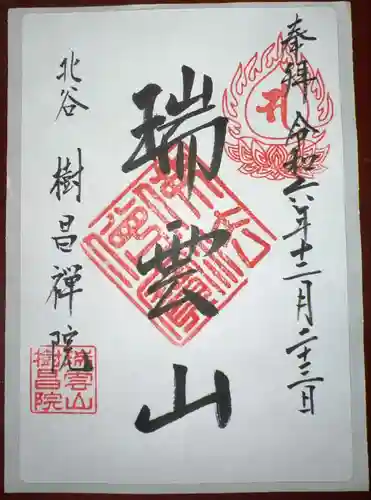 奉拝 令和六年十二月二十三日
瑞雲山
北谷 樹昌禅院
瑞雲山
樹昌院